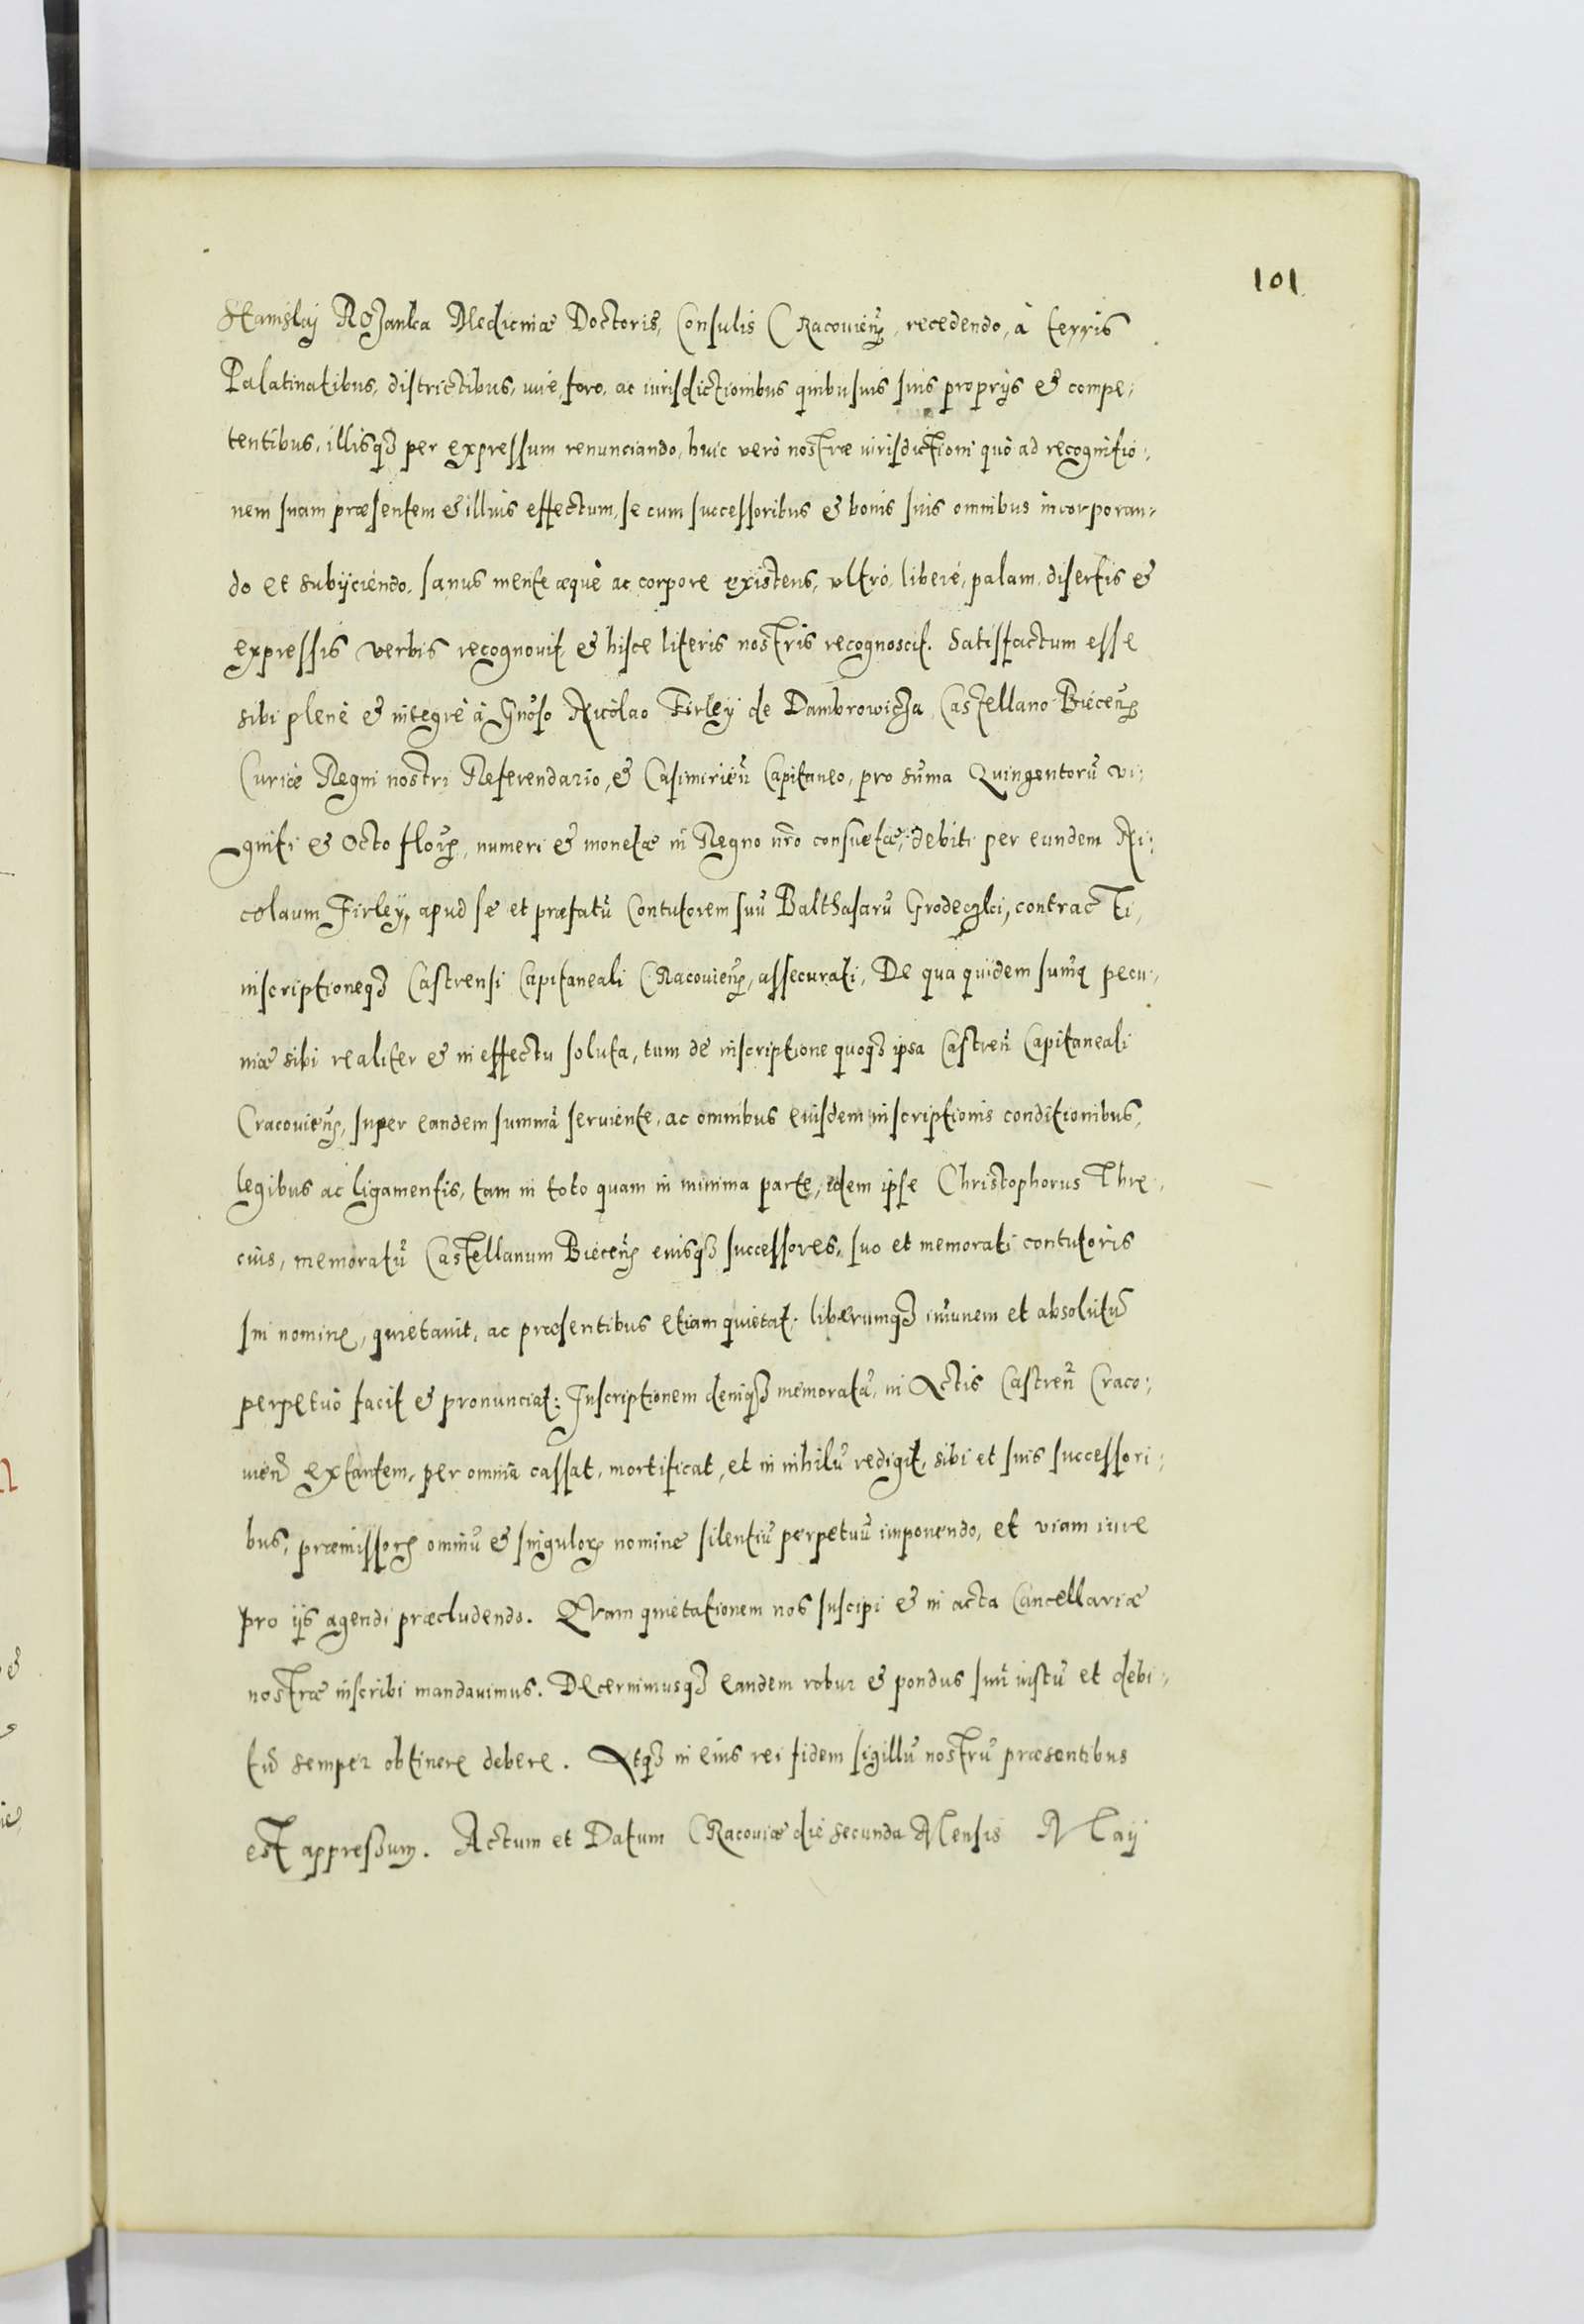 101
Stanislaj Rozanka Medicinæ Doctoris, Consulis CRacovien̄, recedendo, à terris
Palatinatibus, districtibus, iure, foro, ac iurisdictionibus quibusuis suis proprijs & compe:
tentibus, illisq3 per expressum renunciando, huic verò nostræ iurisdictioni quò ad recognitio:
nem suam præsentem & illius effectum, se cum successoribus & bonis suis omnibus incorporan:
do et subijciendo, sanus mente æquè ac corpore existens, vltrò, liberè, palam, disertis &
expressis verbis recognouit, & hisce literis nostris recognoscit. Satisfactum esse
sibi plenè & integrè à Gn̄oso Nicolao Firley de Dambrowicza Castellano Biecen̄
Curiæ Regni nostri Referendario, & Casimirien̄ Capitaneo, pro sum̄a Quingentorū vi:
ginti & Octo flor̄, numeri & monetæ in Regno nr̄o consuetæ, debiti per eundem Ni:
colaum Firley, apud se et præfatū Contutorem suū Balthasarū Grodeczki, contracti,
inscriptioneq3 Castrensi Capitaneali CRacovien̄, assecurati, De qua quidem sum̄a pecu:
niæ sibi realiter & in effectu soluta, tum de inscriptione quoq3 ipsa Castren̄ Capitaneali
Cracovien̄, super eandem summā seruiente, ac omnibus eiusdem inscriptionis conditionibus,
legibus ac ligamentis, tam in toto quam in minima parte, idem ipse Christophorus Thre:
cius, memoratū Castellanum Biecen̄ eiusq3 successores, suo et memorati contutoris
sui nomine, quietauit, ac præsentibus etiam quietat, liberumq3 im̄unem et absolutū
perpetuò facit & pronunciat: Inscriptionem deniq3 memoratā, in Actis Castren̄ Craco:
uien̄ extantem, per omnia cassat, mortificat, et in nihilū redigit, sibi et suis successori:
bus, præmissor̄ omniū & singulor̄ nomine silentiū perpetuū imponendo, et viam iure
pro ijs agendi præcludendo. Quam quietationem nos suscipi & in acta Cancellariæ
nostræ inscribi mandauimus. Decernimusq3 eandem robur & pondus suū iustū et debi:
tū semper obtinere debere. Atq3 in eius rei fidem sigillū nostrū præsentibus
est appressum. Actum et Datum CRacoviæ die secunda Mensis Maij